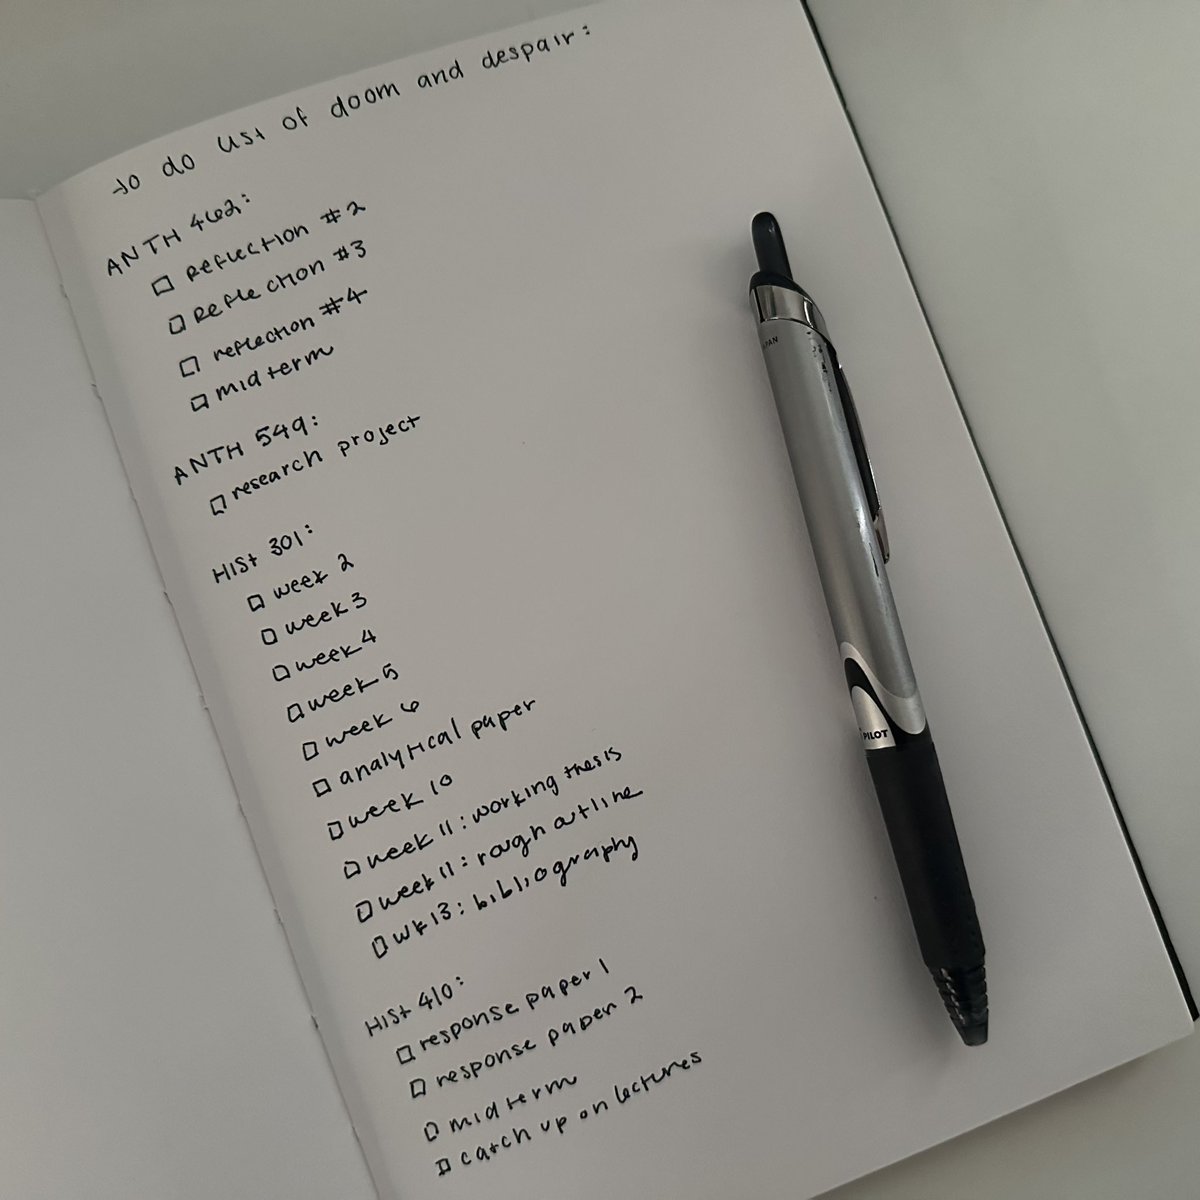 to do list of doom and despair:
ANTH 462:
reflection #2
reflection #3
reflection #4
midterm
ANTH 549:
research project
HIST 301:
week 2
week 3
week 4
week 5
week 6
analytical paper
week 10
week 11: working thesis
week 11: rough outline
wk 13: bibliography
HIST 410:
response paper 1
response paper 2
midterm
catch up on lectures
JAPAN
PILOT